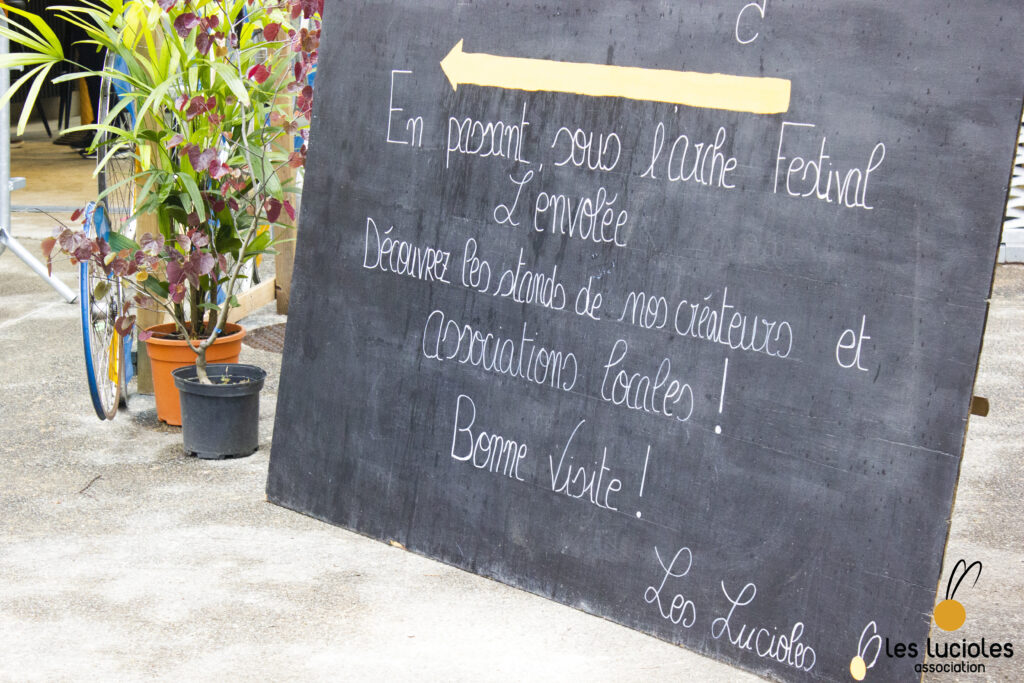 C
En passant, sous l'arche Festival
L'envolée
Découvrez les stands de nos créateurs et
associations locales !
Bonne Visite !
Les Lucioles
Les Lucioles
association